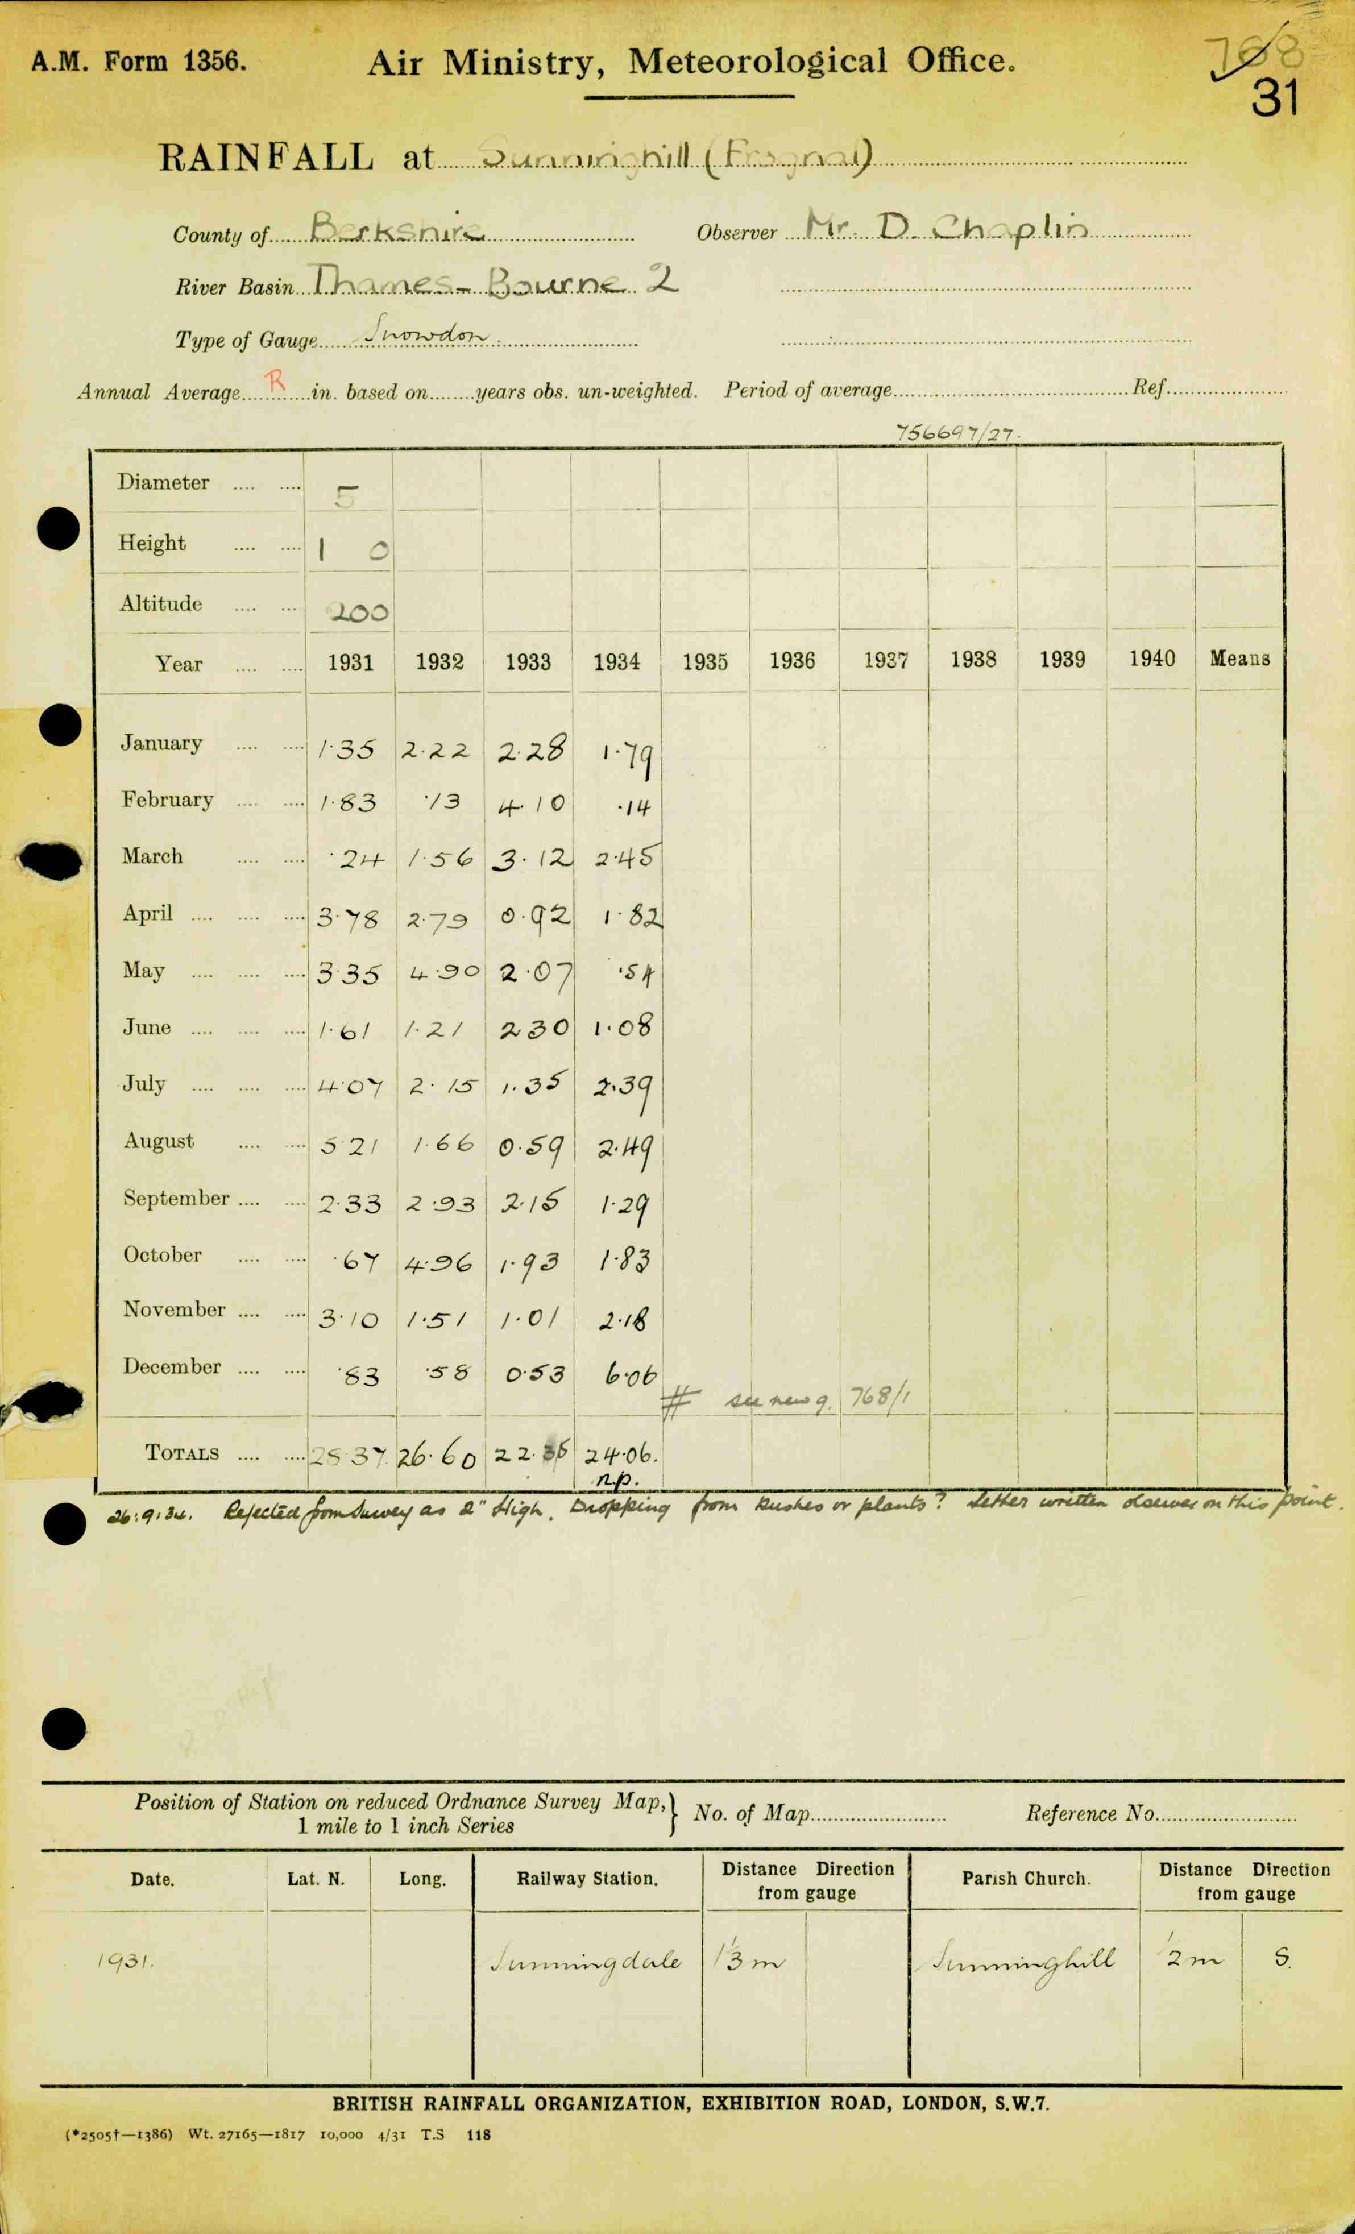 A.M. Form 1356. Air Ministry, Meteorological Office. 768
31
RAINFALL at Sunninghill (Frognal)
County of Berkshire Observer Mr. D. Chaplin
River Basin Thames - Bourne 2
Type of Gauge Snowdon.
Annual Average R in. based on years obs. un-weighted. Period of average Ref.
756697/27.
Diameter 5
Height 1 0
Altitude 200
Year 1931 1932 1933 1934 1935 1936 1937 1938 1939 1940 Means
January 1.35 2.22 2.28 1.79
February 1.83 .13 4.10 .14
March .24 1.56 3.12 2.45
April 3.78 2.79 0.92 1.82
May 3.35 4.90 2.07 .54
June 1.61 1.21 2.30 1.08
July 4.07 2.15 1.35 2.39
August 5.21 1.66 0.59 2.49
September 2.33 2.93 2.15 1.29
October .67 4.96 1.93 1.83
November 3.10 1.51 1.01 2.18
December .83 .58 0.53 6.06
# see new g. 768/1
TOTALS 28.37 26.60 22.35 24.06.
n.p.
26.9.34. Rejected from Survey as 2" High. Dropping from bushes or plants? Letter written observer on this point.
Position of Station on reduced Ordnance Survey Map, } No. of Map Reference No.
1 mile to 1 inch Series
Date. Lat. N. Long. Railway Station. Distance Direction from gauge Parish Church. Distance Direction from gauge
1931. Sunningdale 1 1/3 m Sunninghill 1/2 m S.
BRITISH RAINFALL ORGANIZATION, EXHIBITION ROAD, LONDON, S.W.7.
(*2505†—1386) Wt. 27165—1817 10,000 4/31 T.S 118